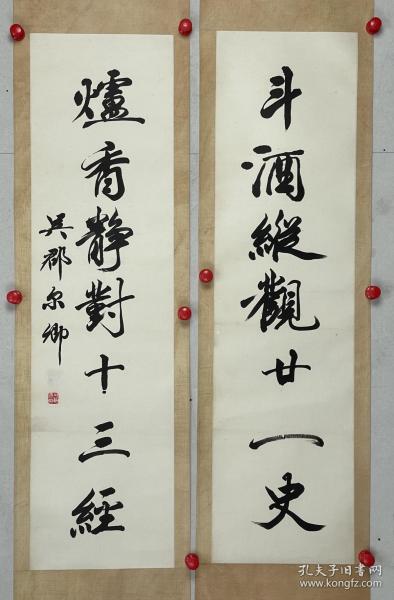 斗酒縱觀廿一史
爐香静對十三經
吳郡尔卿
孔夫子旧书网
www.kongfz.com